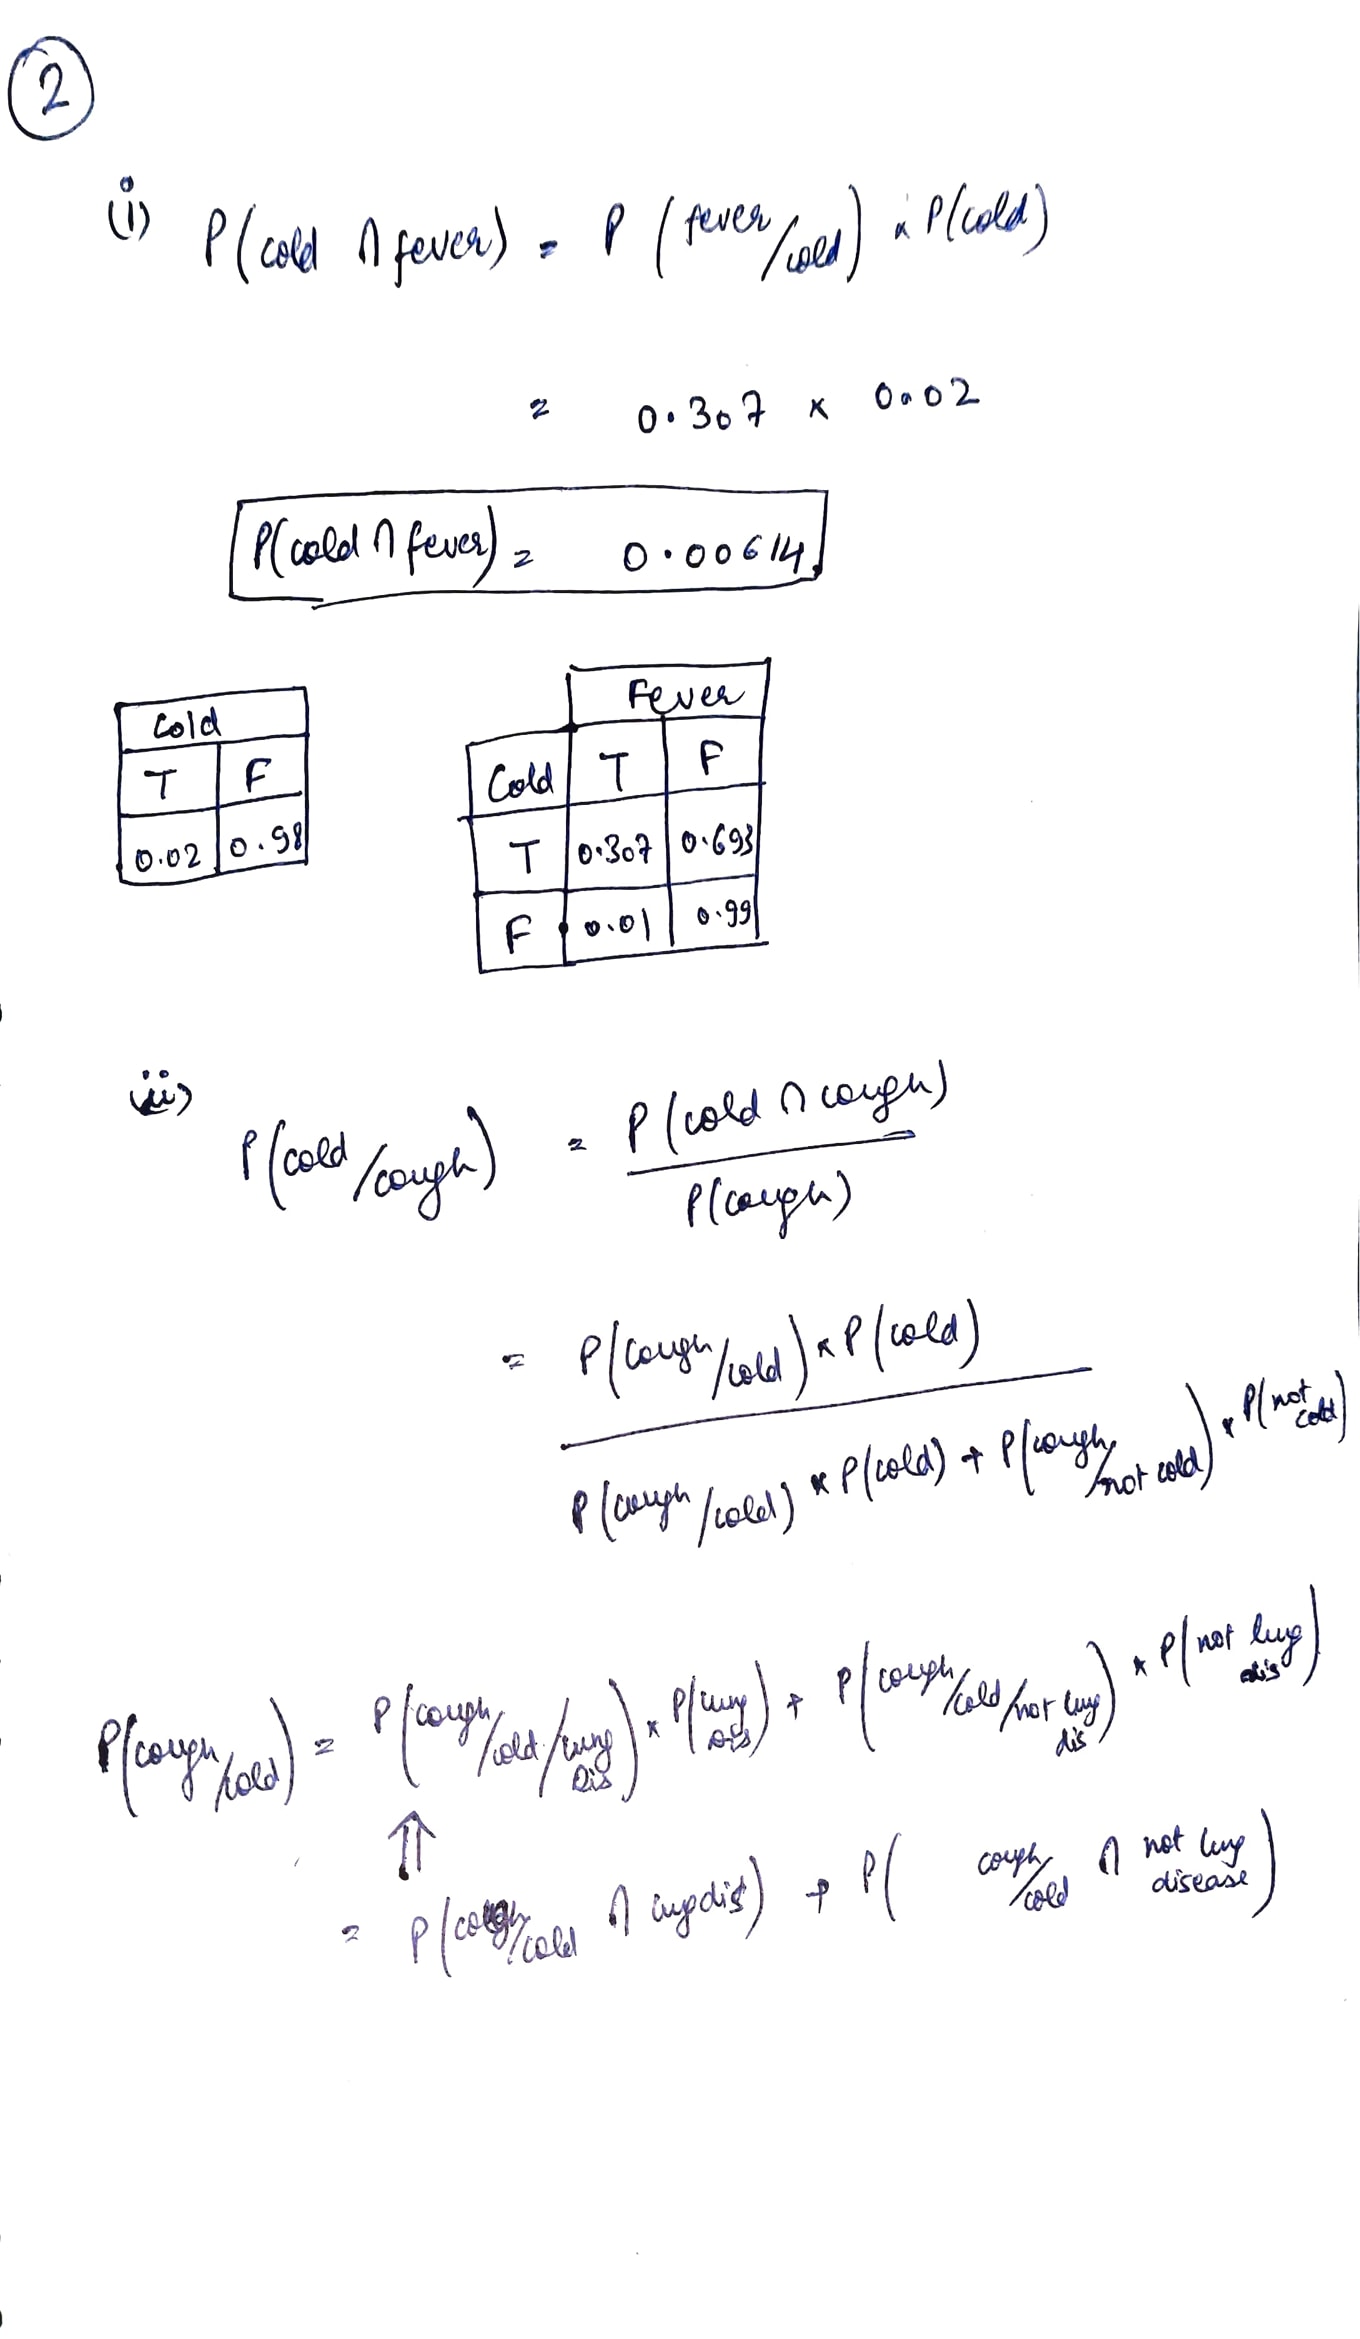 2
(i) P(cold ∩ fever) = P(fever/cold) × P(cold)
= 0.307 × 0.02
P(cold ∩ fever) = 0.00614
Cold
T F
0.02 0.98
Fever
Cold T F
T 0.307 0.693
F 0.01 0.99
(ii) P(cold/cough) = P(cold ∩ cough)
P(cough)
= P(cough/cold) × P(cold)
P(cough/cold) * P(cold) + P(cough/not cold) * P(not cold)
P(cough/cold) = P(cough/cold/lung Dis) * P(lung Dis) + P(cough/cold/not lung dis) * P(not lung dis)
⇑
= P(cough/cold ∩ lung dis) + P( cough/cold ∩ not lung disease)